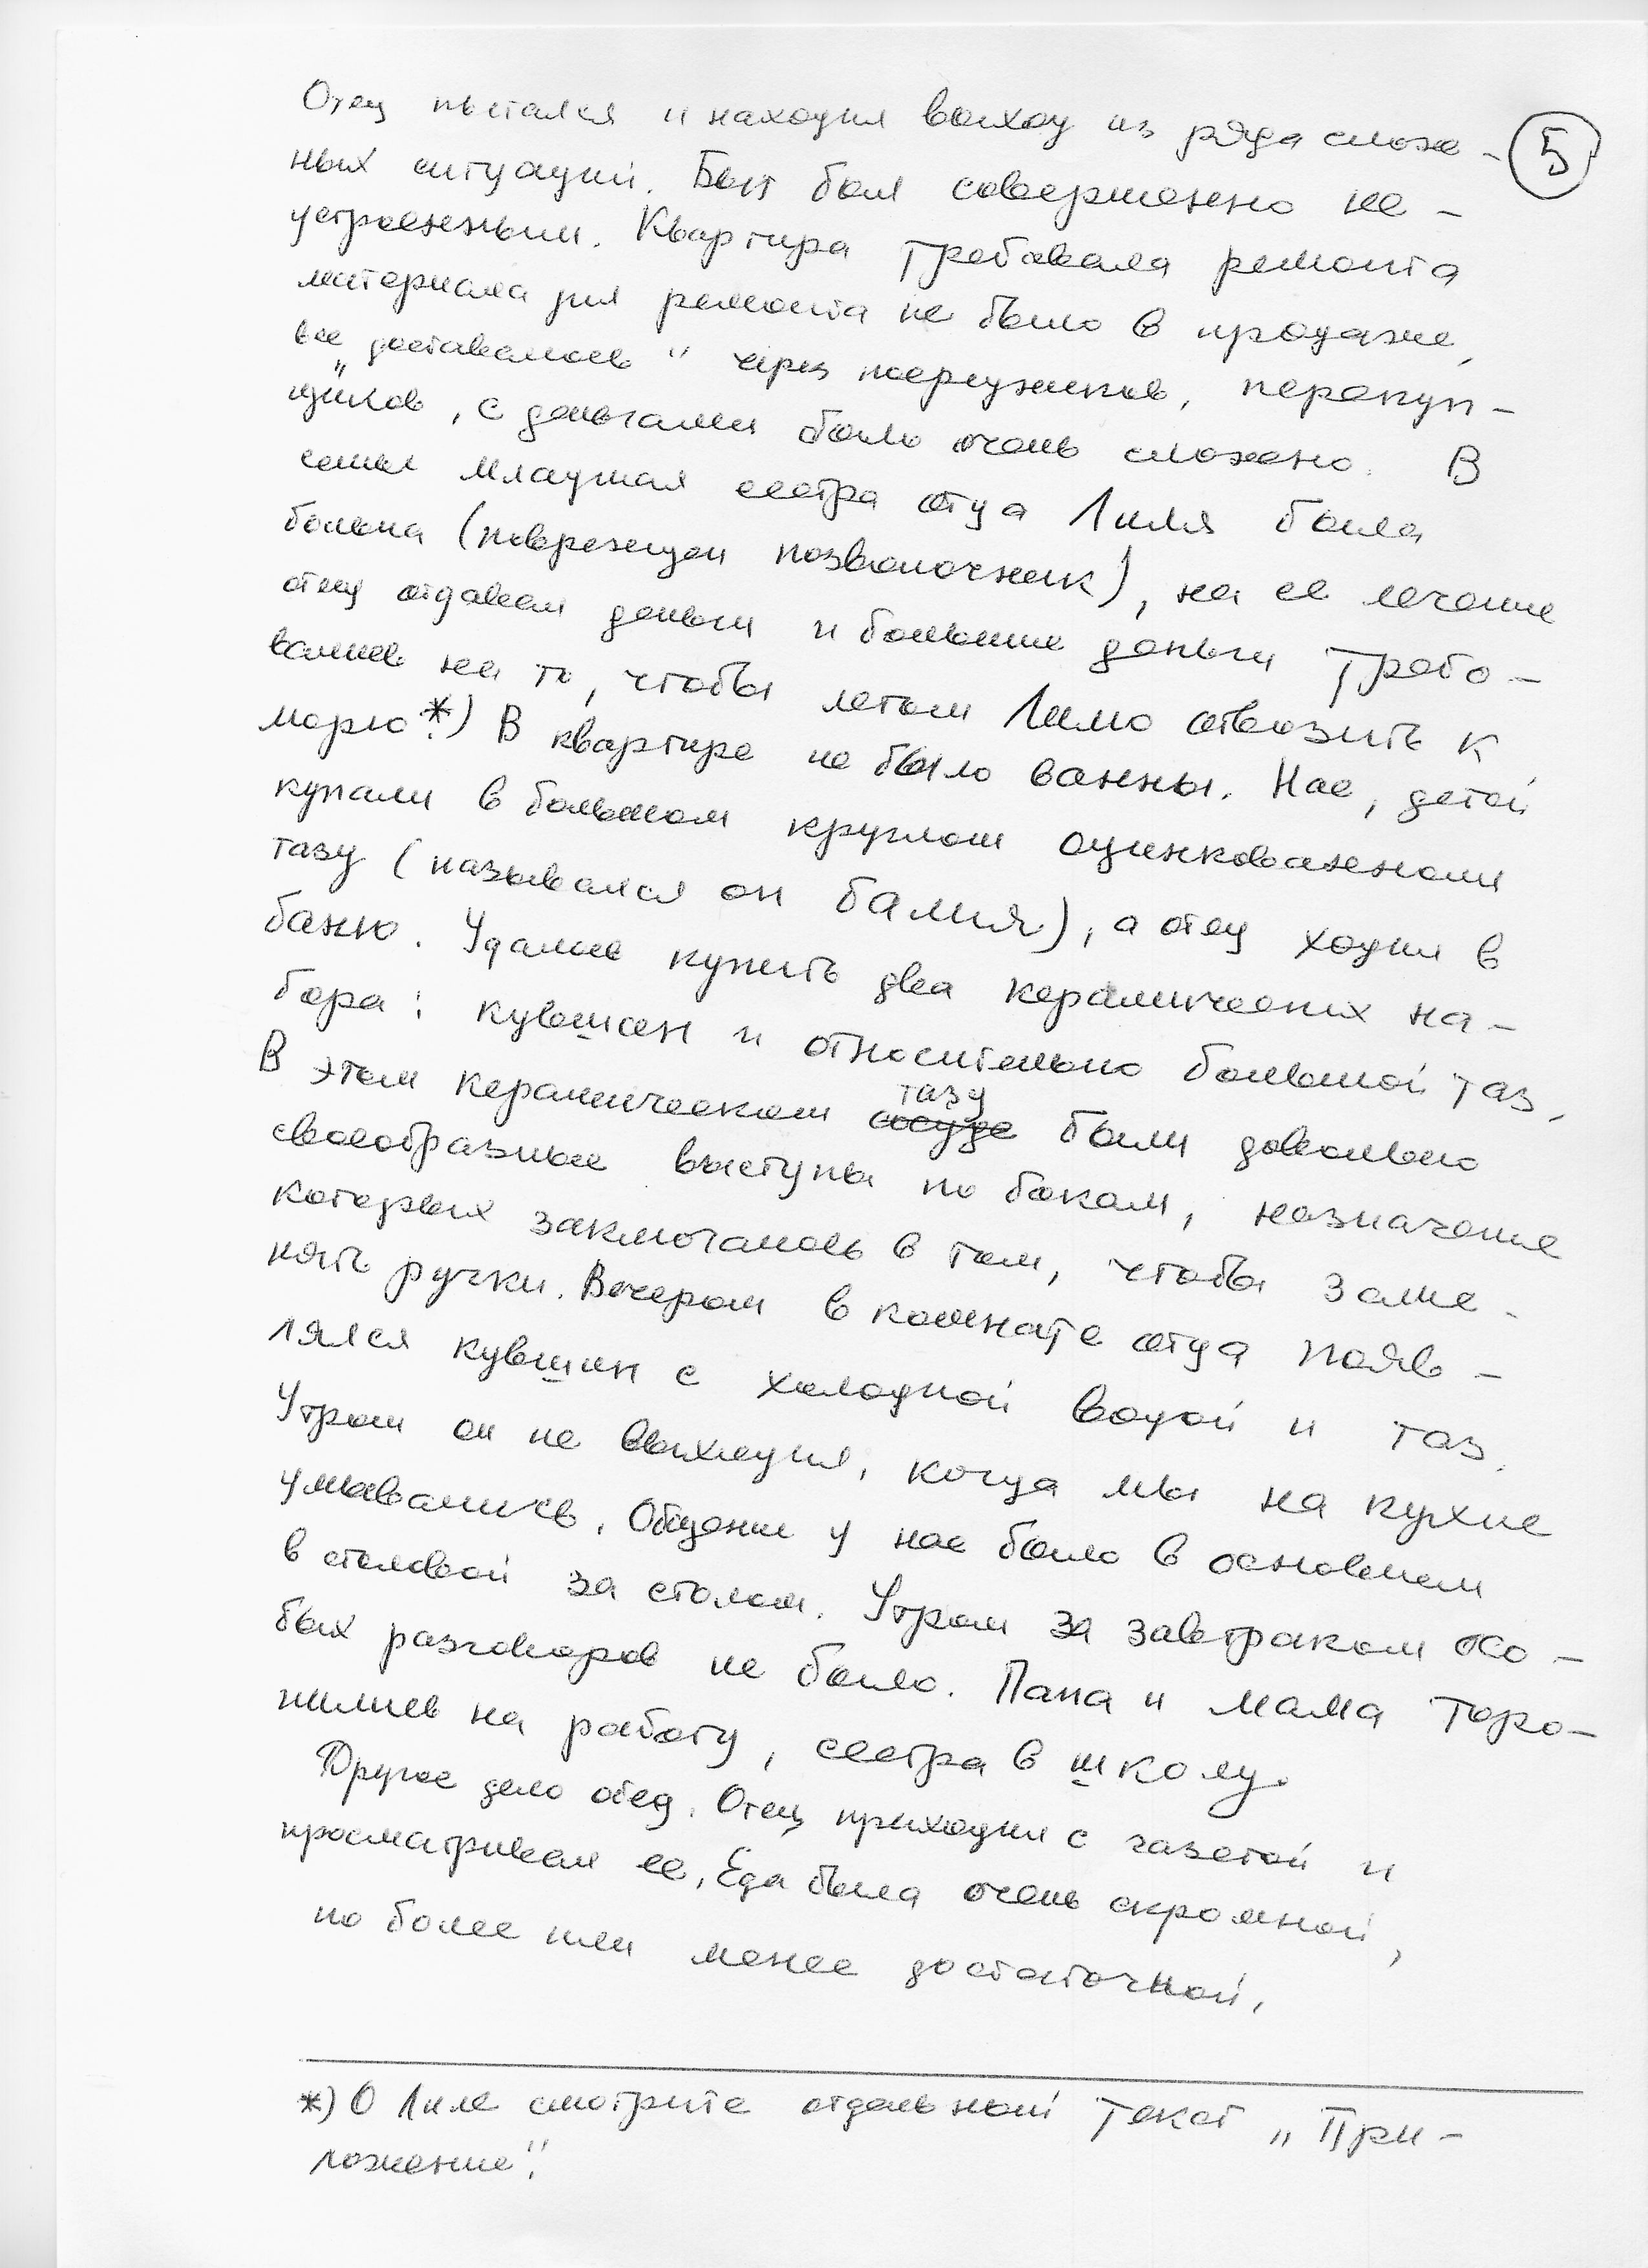 Отец пытался и находил выход из ряда слож-
5
ных ситуаций. Быт был совершенно не-
устроенным. Квартира требовала ремонта
материала для ремонта не было в продаже,
все „доставалось" через посредников, перекуп-
щиков, с деньгами было очень сложно. В
семье младшая сестра отца Лиля была
больна (поврежден позвоночник), на ее лечение
отец отдавал деньги и большие деньги требо-
вались на то, чтобы летом Лилю отвозить к
морю.*) В квартире не было ванны. Нас, детей
купали в большом круглом оцинкованном
тазу (назывался он балия), а отец ходил в
баню. Удалось купить два керамических на-
бора: кувшин и относительно большой таз.
В этом керамическом сосуде тазу были довольно
своеобразные выступы по бокам, назначение
которых заключалось в том, чтобы заме-
нять ручки. Вечером в комнате отца появ-
лялся кувшин с холодной водой и таз.
Утром он не выходил, когда мы на кухне
умывались. Общение у нас было в основном
в столовой за столом. Утром за завтраком осо-
бых разговоров не было. Папа и мама торо-
пились на работу, сестра в школу.
Другое дело обед. Отец приходил с газетой и
просматривал ее, Еда была очень скромной,
но более или менее достаточной.
*) О Лиле смотрите отдельный текст „При-
ложение".